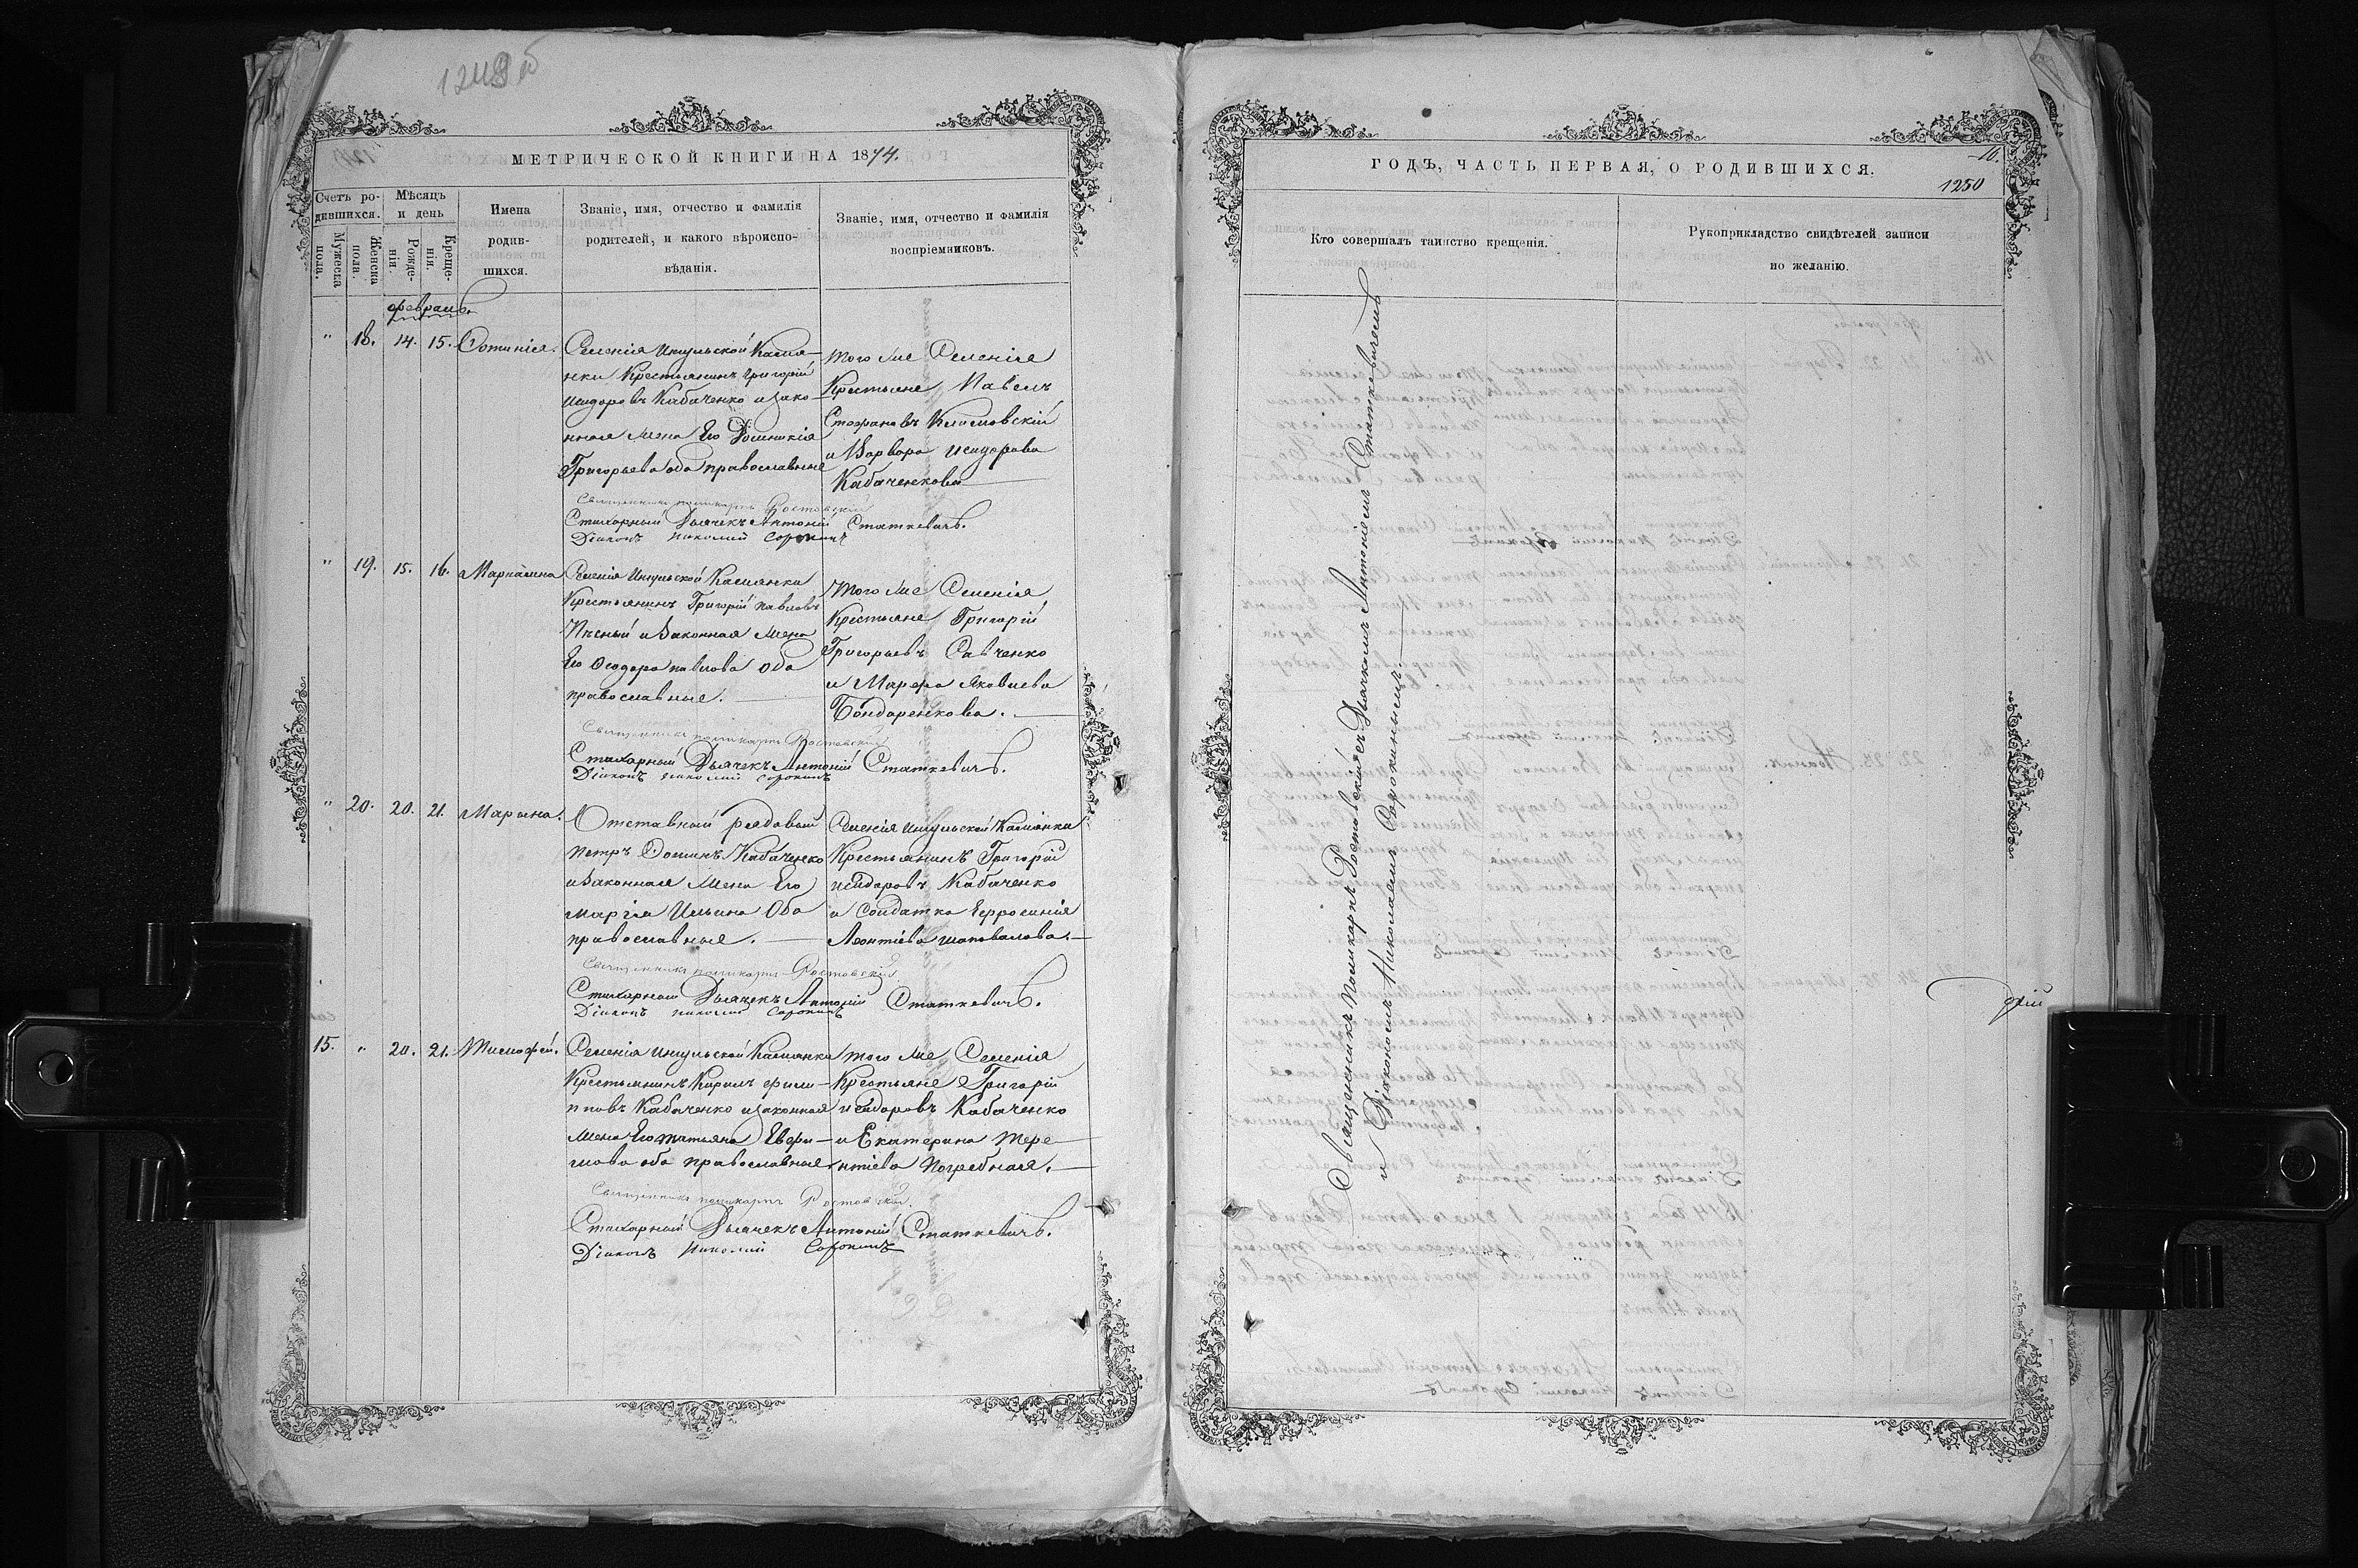 МЕТРИЧЕСКОЙ КНИГИ НА 1874.
Счетъ ро-
дившихся.
Мужеска
пола.
Женска
пола.
Мѣсяцъ
и день
Рожде-
нія.
Креще-
нія.
Имена
родив-
шихся.
Званіе, имя, отчество и фамилія
родителей, и какого вѣроиспо-
вѣданія.
Званіе, имя, отчество и фамилія
воспріемниковъ.
февраль.
" 18. 14. 15. Фотинія.
Селенія Ингульской Камя-
нки Крестьянинъ Григорій
Исидоровъ Кабаченко и зако-
нная жена Его Домникія
Григорьева оба православные
того же Селенія
Крестьяне Павелъ
Стефановъ Климовскій
и Варвара Исидорова
Кабаченкова
Священникъ Поликарпъ Ростовскій
Стихарный Дьячекъ Антоній Статкевичъ.
Діаконъ Николай Сорокинъ
" 19. 15. 16. Маріамна
Селенія Ингульской Камянки
Крестьянинъ Григорій Павловъ
и Законная жена
Его Феодора Павлова Оба
православные.
того же Селенія
Крестьяне Григорій
Григорьевъ Савченко
и Марфа Яковлева
Бондаренкова.
Священникъ Поликарпъ Ростовскій
Стихарный Дьячекъ Антоній Статкевичъ.
Діаконъ Николай Сорокинъ
" 20. 20. 21. Марина.
Отставный рядовый
Петръ Фоминъ Кабаченко
и Законная жена Его
Марія Ильина Оба
православные.
Селенія Ингульской Камянки
Крестьянинъ Григорій
Исидоровъ Кабаченко
и Солдатка Евфросинія
Леонтіева Шаповалова.
Священникъ Поликарпъ Ростовскій
Стихарный Дьячекъ Антоній Статкевичъ.
Діаконъ Николай Сорокинъ
15. " 20. 21. Тимофей.
Селенія Ингульской Камянки
Крестьянинъ Кирилъ Фили-
пповъ Кабаченко и законная
жена Его Татьяна Евфи-
мова оба православные
того же Селенія
Крестьяне Григорій
Исидоровъ Кабаченко
и Екатерина Тере-
нтіева Погребная.
Священникъ Поликарпъ Ростовскій.
Стихарный Дьячекъ Антоній Статкевичъ.
Діаконъ Николай Сорокинъ
ГОДЪ, ЧАСТЬ ПЕРВАЯ, О РОДИВШИХСЯ.
1250
Кто совершалъ таинство крещенія.
Рукоприкладство свидѣтелей записи
по желанію.
Священникъ Поликарпъ Ростовскій съ Дьячкомъ Антоніемъ Статкевичемъ
и Діакономъ Николаемъ Сорокинымъ.